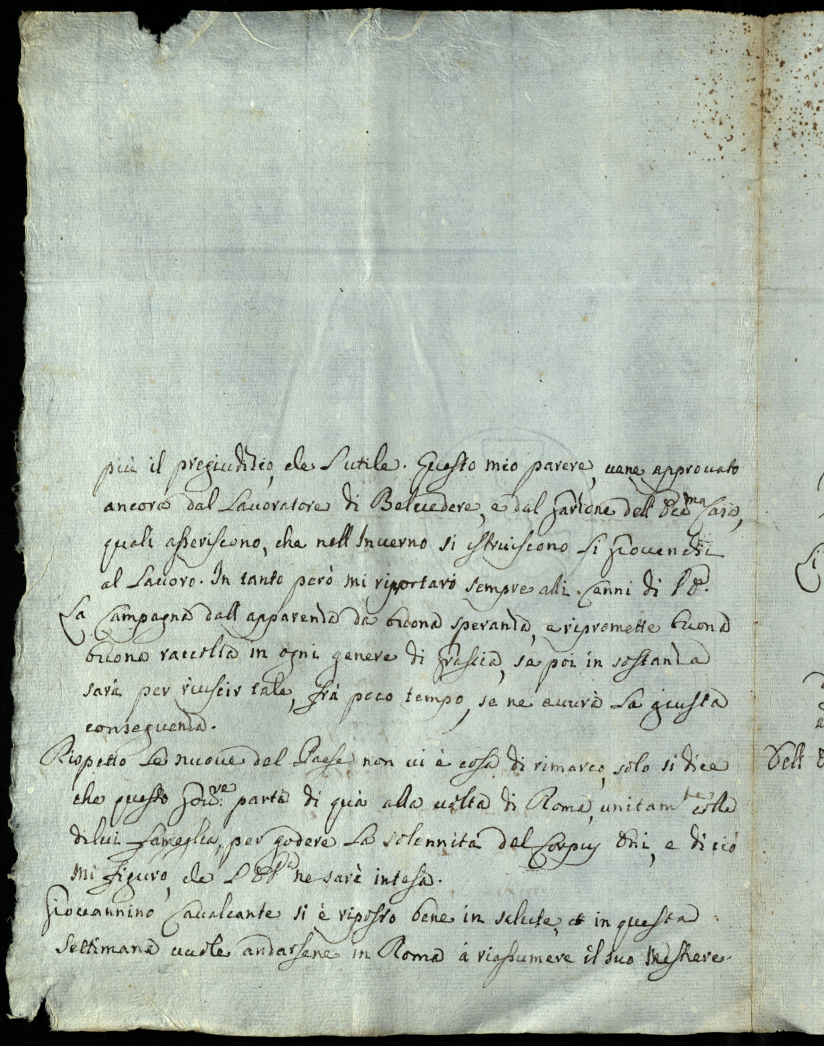 più il pregiuditio, che l'utile. Questo mio parere, uane approuato
ancora dal Lauoratore di Beluedere, e dal fattone dell' Ecc.ma Casa,
quali asseriscono, che nell'Inuerno si istruiscono li Giouenchi
al Lauoro. In tanto però mi riportarò sempre alli Cenni di V.E.
La Campagna dall'apparenza dà buona speranza, e ripromette buona
buona raccolta in ogni genere di Grascia, se poi in sostanza
sarà per riuscir tale, frà poco tempo, se ne aurrà la giusta
conseguenza.
Rispetto le nuoue del Paese non ui è cosa di rimarco, solo si dice
che questo Gou.re parta di quà alla uolta di Roma, unitam.te colla
di lui fameglia, per godere la solennità del Corpus Dñi, e di ciò
mi figuro, che l'E.V. ne sarà intesa.
Giouannino Caualcante si è riposto bene in salute, et in questa
Settimana uuole andarsene in Roma à riassumere il suo Mestiere.
Li
Dell'